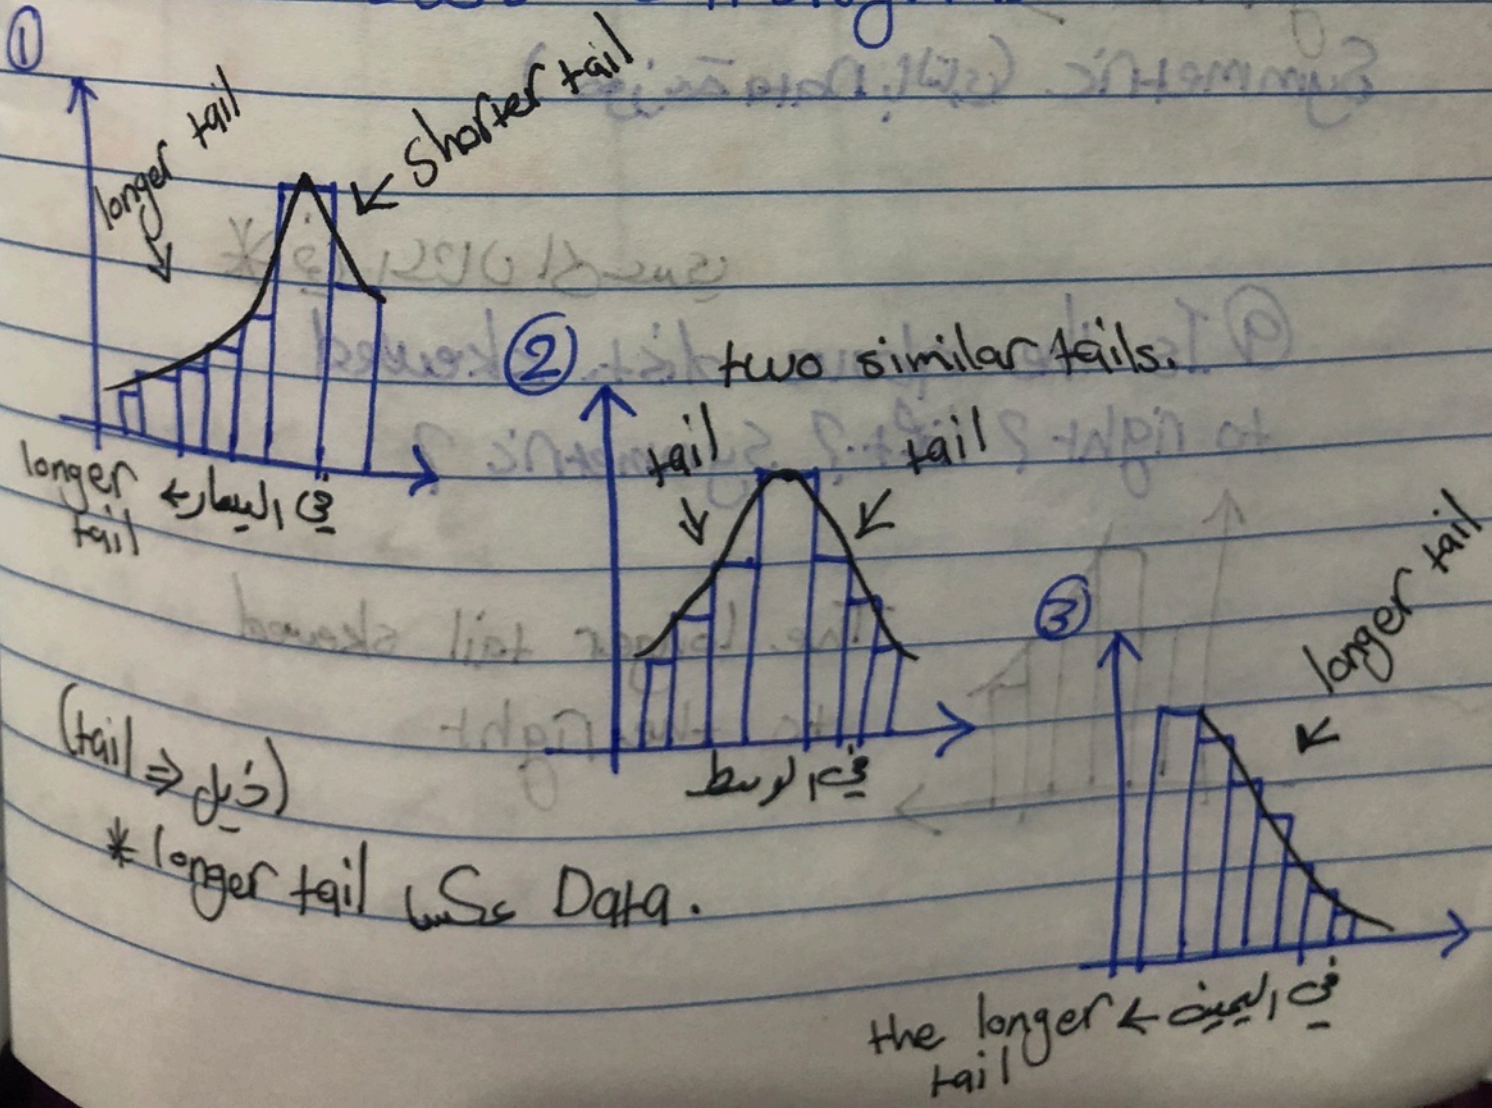 ①
longer tail
shorter tail
longer tail ← في اليسار
②
two similar tails.
tail
tail
في الوسط
③
longer tail
the longer tail ← في اليمين
(tail ⇒ ذيل)
* longer tail عكس Data.